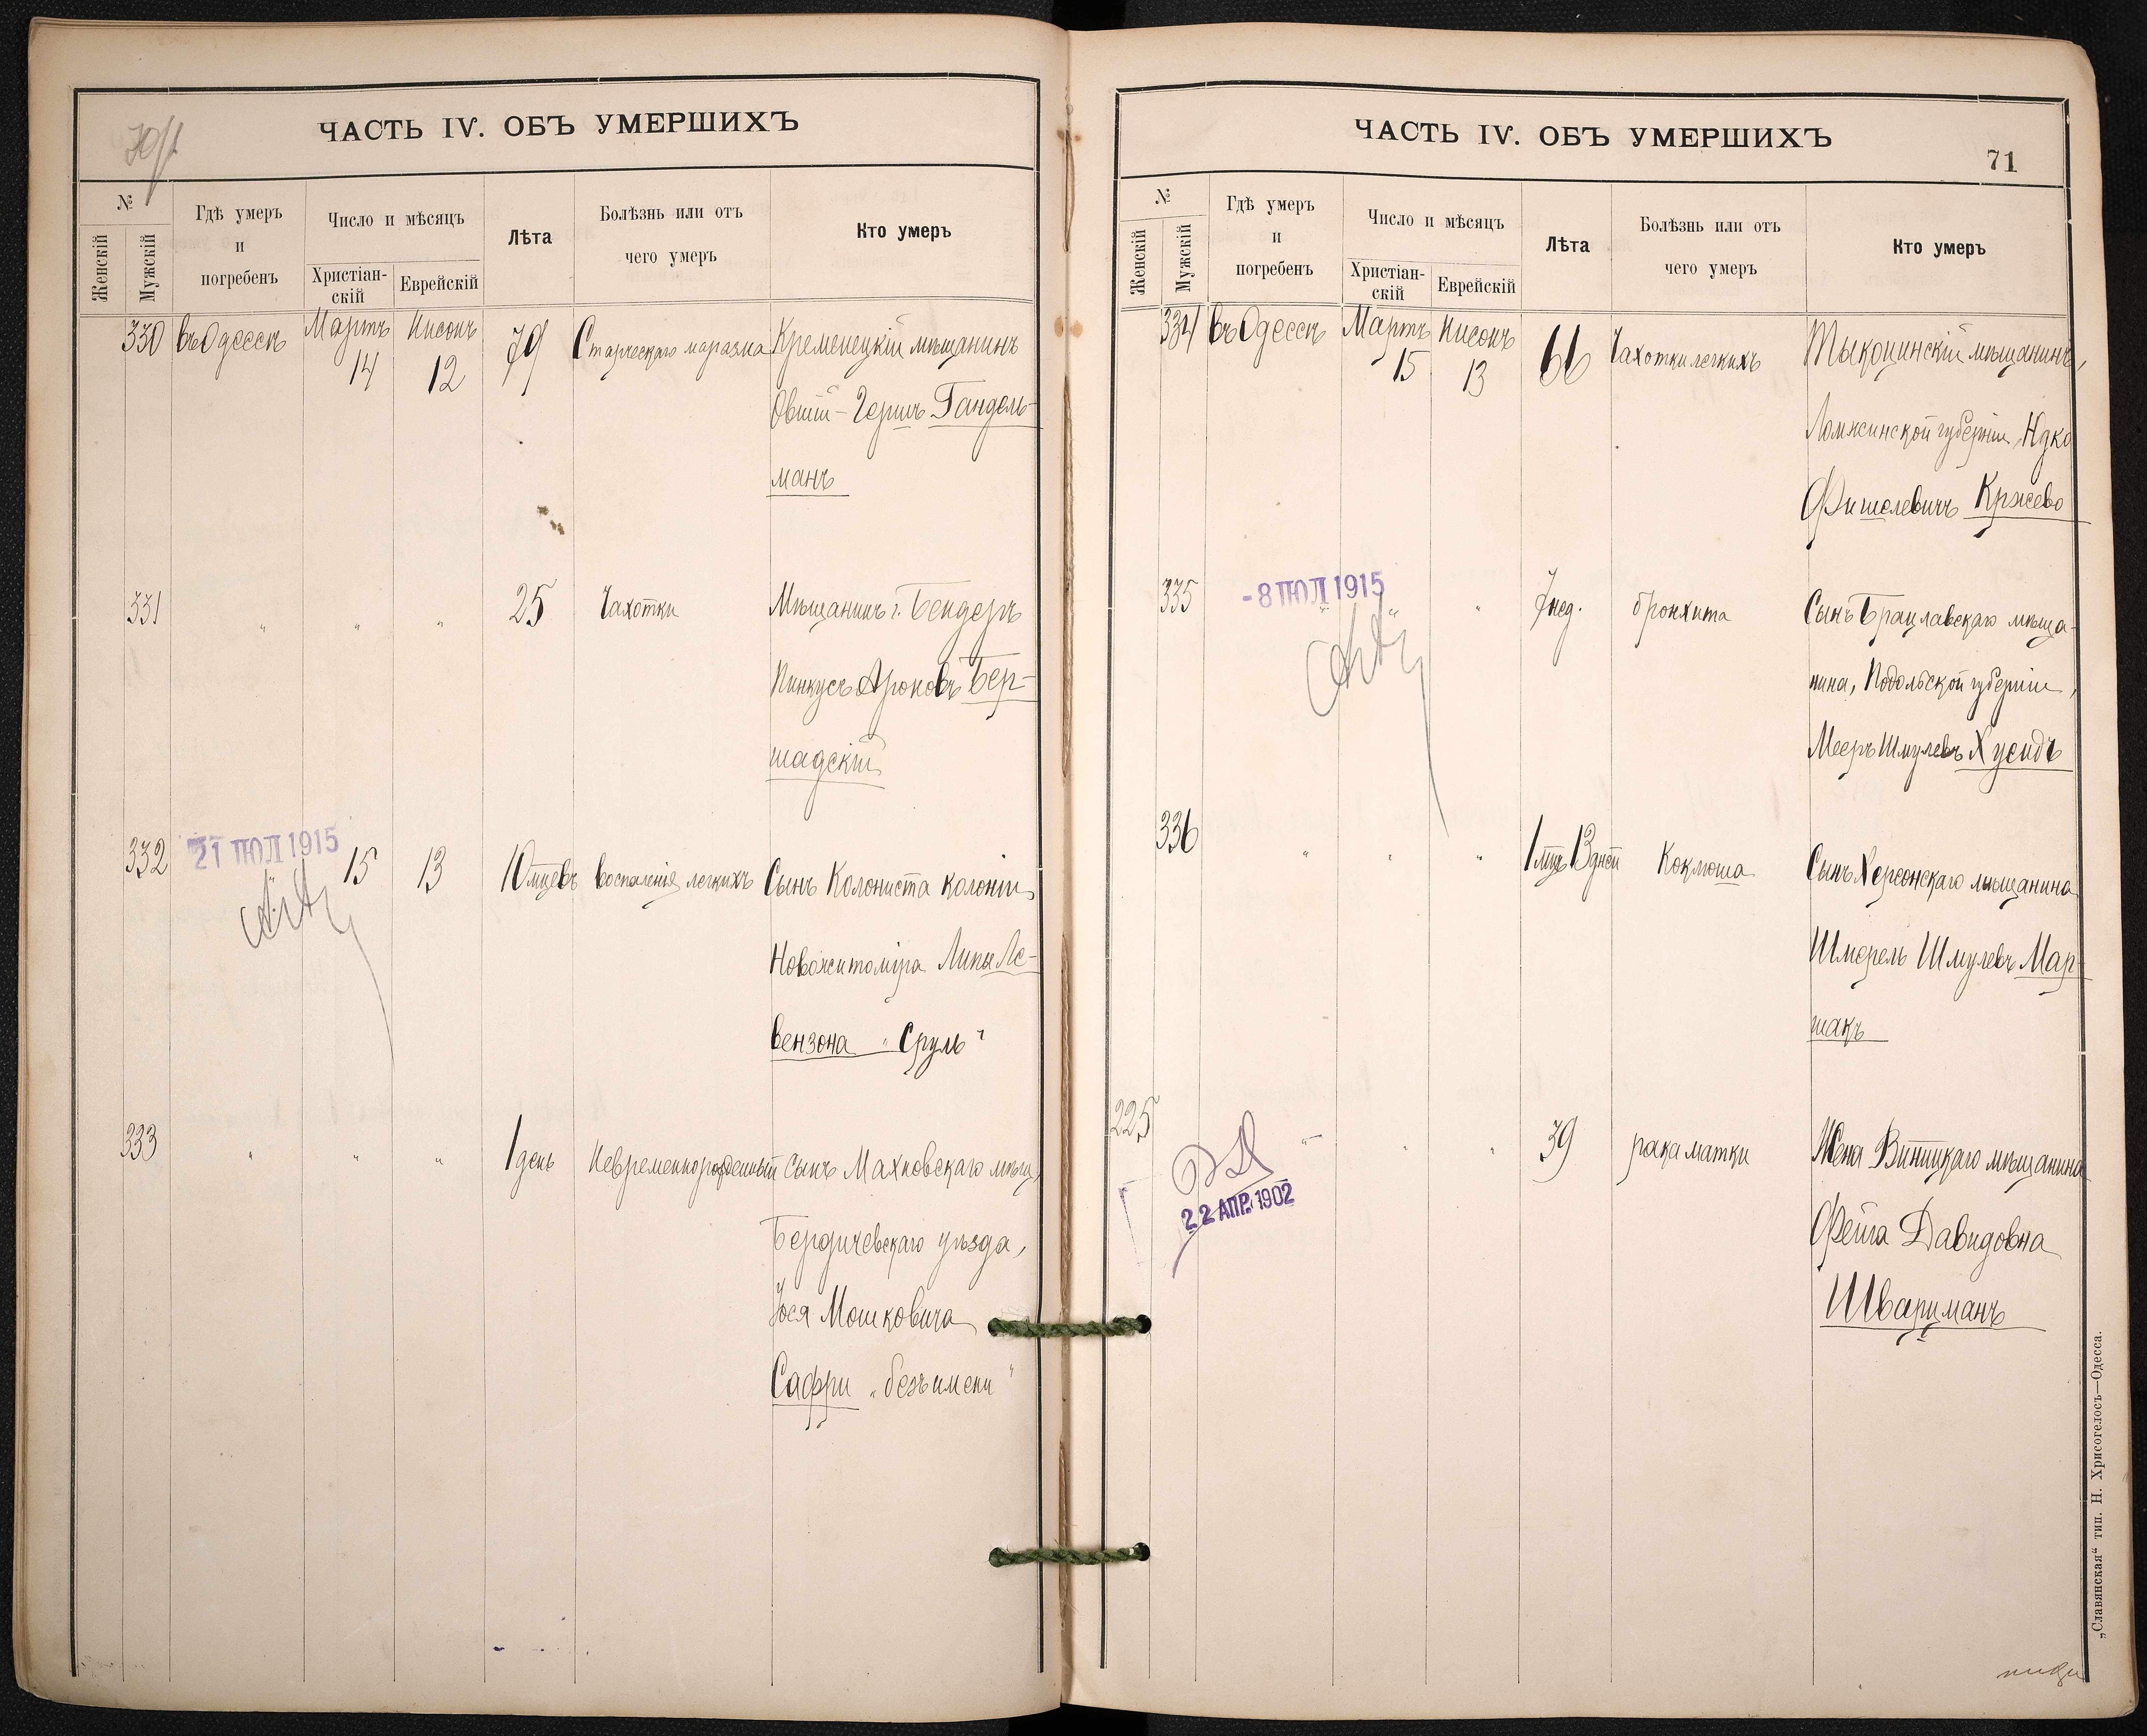 70/1
ЧАСТЬ IV. ОБЪ УМЕРШИХЪ
№
Женскій
Мужскій
Гдѣ умеръ
и
погребенъ
Число и мѣсяцъ
Христіан-
скій
Еврейскій
Лѣта
Болѣзнь или отъ
чего умеръ
Кто умеръ
330 въ Одессѣ Мартъ 14 Нисонъ 12 79 Старческаго маразма Кременецкій мѣщанинъ
Овшій-Гершъ Гандель-
манъ
331 " " " 25 Чахотки Мѣщанинъ г. Бендеръ
Пинкусъ Ароновъ Бер-
шадскій
332 21 ІЮЛ 1915 15 13 10 мцевъ воспаленія легкихъ Сынъ Колониста колоніи
Новожитоміра Липы Ле-
вензона „Сруль"
333 " " " 1 день Невременнорожденный Сынъ Махновскаго мѣщ.
Бердичевскаго уѣзда,
Іося Мошковича
Сафри „безъ имени"
ЧАСТЬ IV. ОБЪ УМЕРШИХЪ
71
№
Женскій
Мужскій
Гдѣ умеръ
и
погребенъ
Число и мѣсяцъ
Христіан-
скій
Еврейскій
Лѣта
Болѣзнь или отъ
чего умеръ
Кто умеръ
334 въ Одессѣ Мартъ 15 Нисонъ 13 66 Чахотки легкихъ Тыкоцинскій мѣщанинъ,
Ломжинской губерніи,
Фишелевичъ Кржево
335 -8 ІЮЛ 1915 " " 7 нед. бронхита Сынъ Брацлавскаго мѣща-
нина, Подольской губерніи,
Мееръ Шмулевъ Хусидъ
336 " " " 1 мцъ 13 дней Коклюша Сынъ Херсонскаго мѣщанина
Шмерель Шмулевъ Мар-
шакъ
225 " " " 39 рака матки Жена Винницкаго мѣщанина
22 АПР. 1902
Фейга Давидовна
Шварцманъ
„Славянская“ тип. Н. Хрисогелосъ—Одесса.